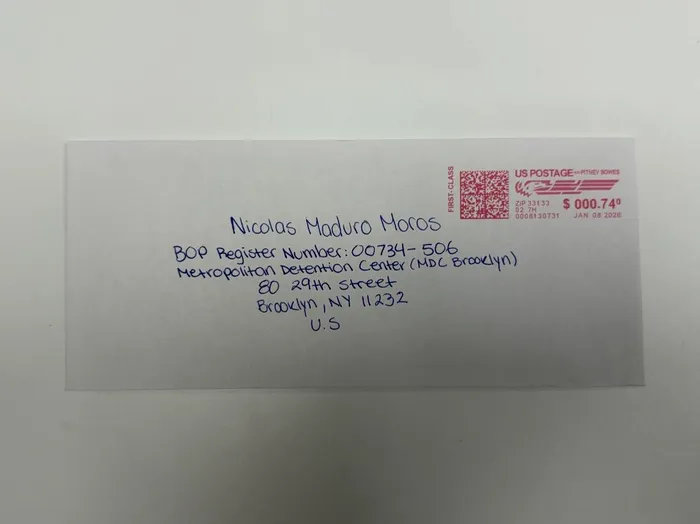 FIRST-CLASS
US POSTAGE PITNEY BOWES
ZIP 33133
02 7H
0008130731
$ 000.74⁰
JAN 08 2026
Nicolas Maduro Moros
BOP Register Number: 00734-506
Metropolitan Detention Center (MDC Brooklyn)
80 29th street
Brooklyn, NY 11232
U.S